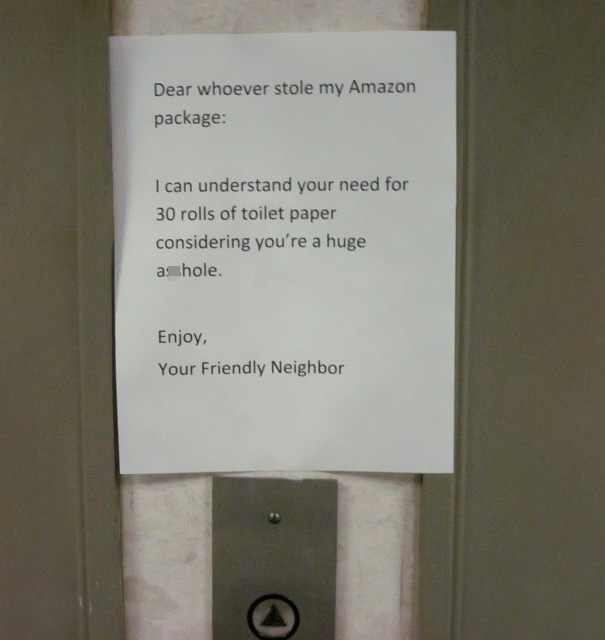 Dear whoever stole my Amazon
package:
I can understand your need for
30 rolls of toilet paper
considering you're a huge
as hole.
Enjoy,
Your Friendly Neighbor